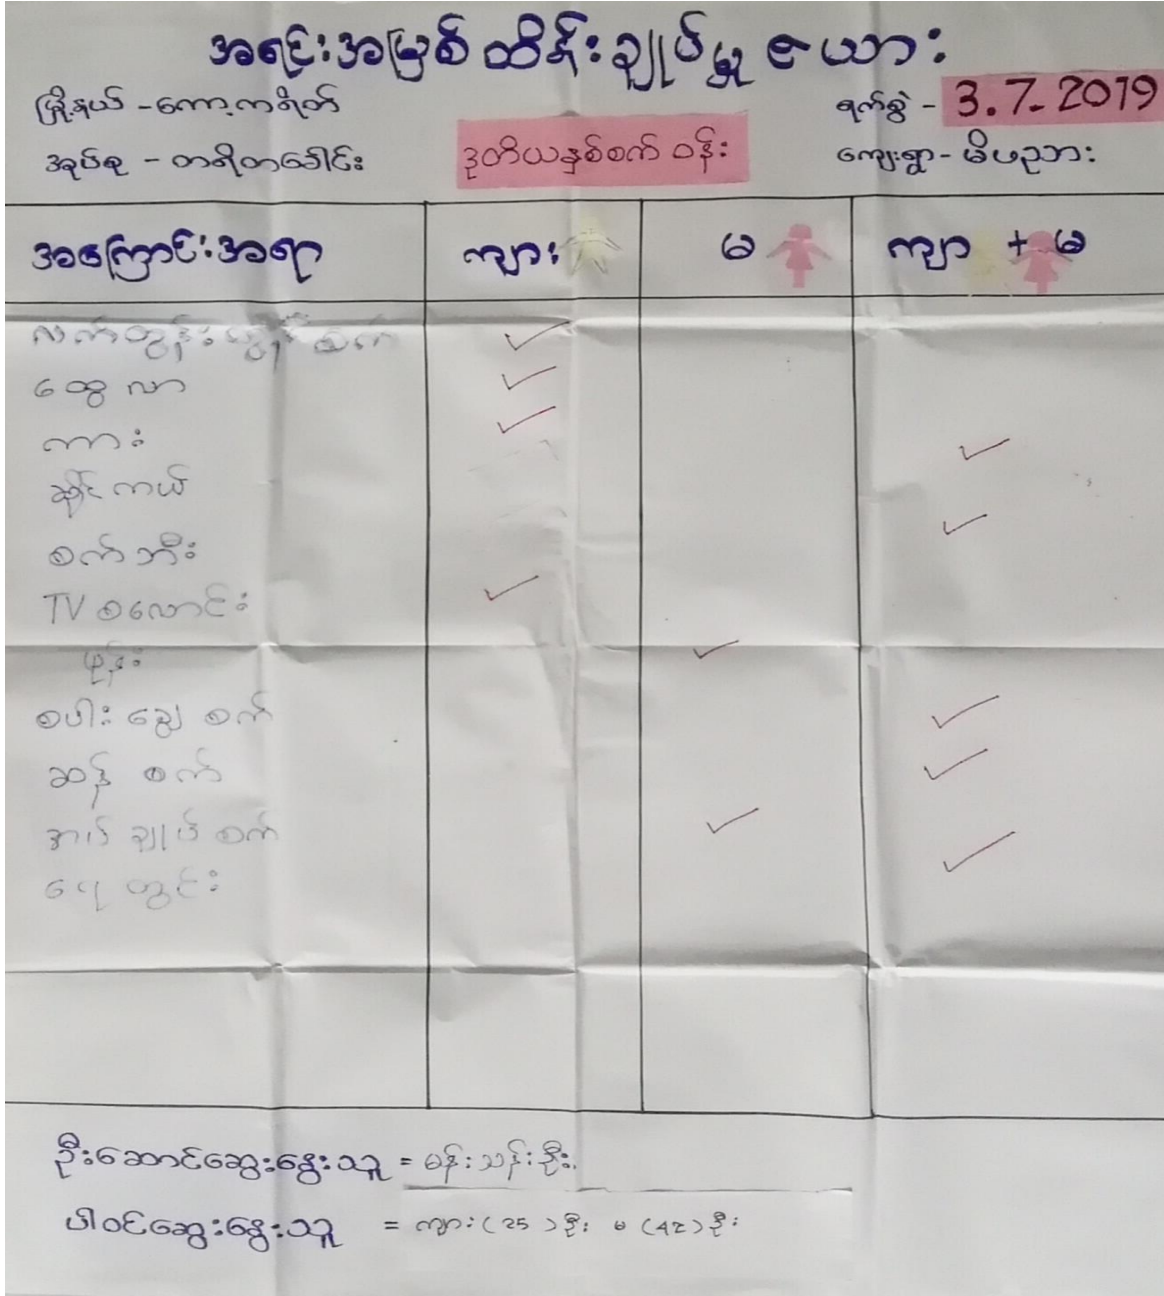 အရင်းအမြစ်ထိန်းချုပ်မှုဇယား
မြို့နယ် - ကော့ကရိတ် ရက်စွဲ - 3.7-2019
အုပ်စု - တရိတခေါင်း ဒုတိယနှစ်စက်ဝန်း ကျေးရွာ - မိပညား
အကြောင်းအရာ ကျား မ ကျာ + မ
လက်တွန်း ထွန်စက်
ထွေလာ
ကား
ဆိုင်ကယ်
စက်ဘီး
TV စလောင်း
ဖုန်း
စပါးချွေစက်
ဆန်စက်
အပ်ချုပ်စက်
ရေတွင်း
ဦးဆောင်ဆွေးနွေးသူ = မန်းသန်းဦး
ပါဝင်ဆွေးနွေးသူ = ကျား (25) ဦး မ (42) ဦး